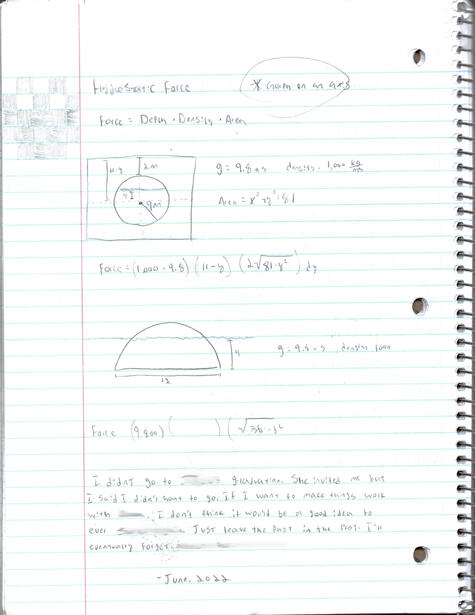 Hydrostatic Force
* Graph on an axis
Force = Depth · Density · Area
11-y
2m
g = 9.8 m/s density = 1,000 kg/m³
y
9m
Area = x² + y² = 81
Force = (1,000 · 9.8) (11-y) (2√81-y²) dy
g = 9.8 m/s, density 1000
12
Force (9,800) ( ) (√36-y²
I didn't go to graduation. She invited me but
I said I didn't want to go. If I want to make things work
with I don't think it would be a good idea to
ever Just leave the past in the past. I'll
eventually forget
-June, 2022